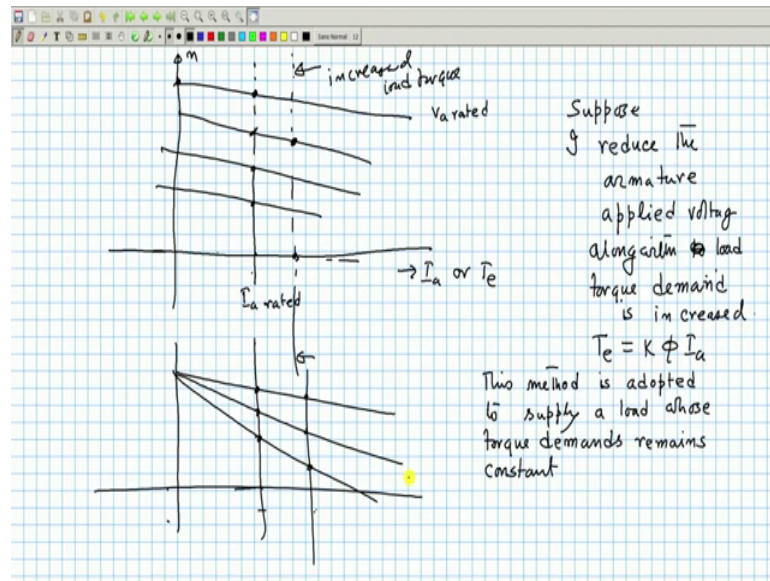 Sans Normal 12
n
increased
load torque
Va rated
→ Ia or Te
Ia rated
Suppose
I reduce The
armature
applied voltag
alongwith load
torque demand
is increased.
Te = K φ Ia
This method is adopted
to supply a load whose
torque demands remains
constant